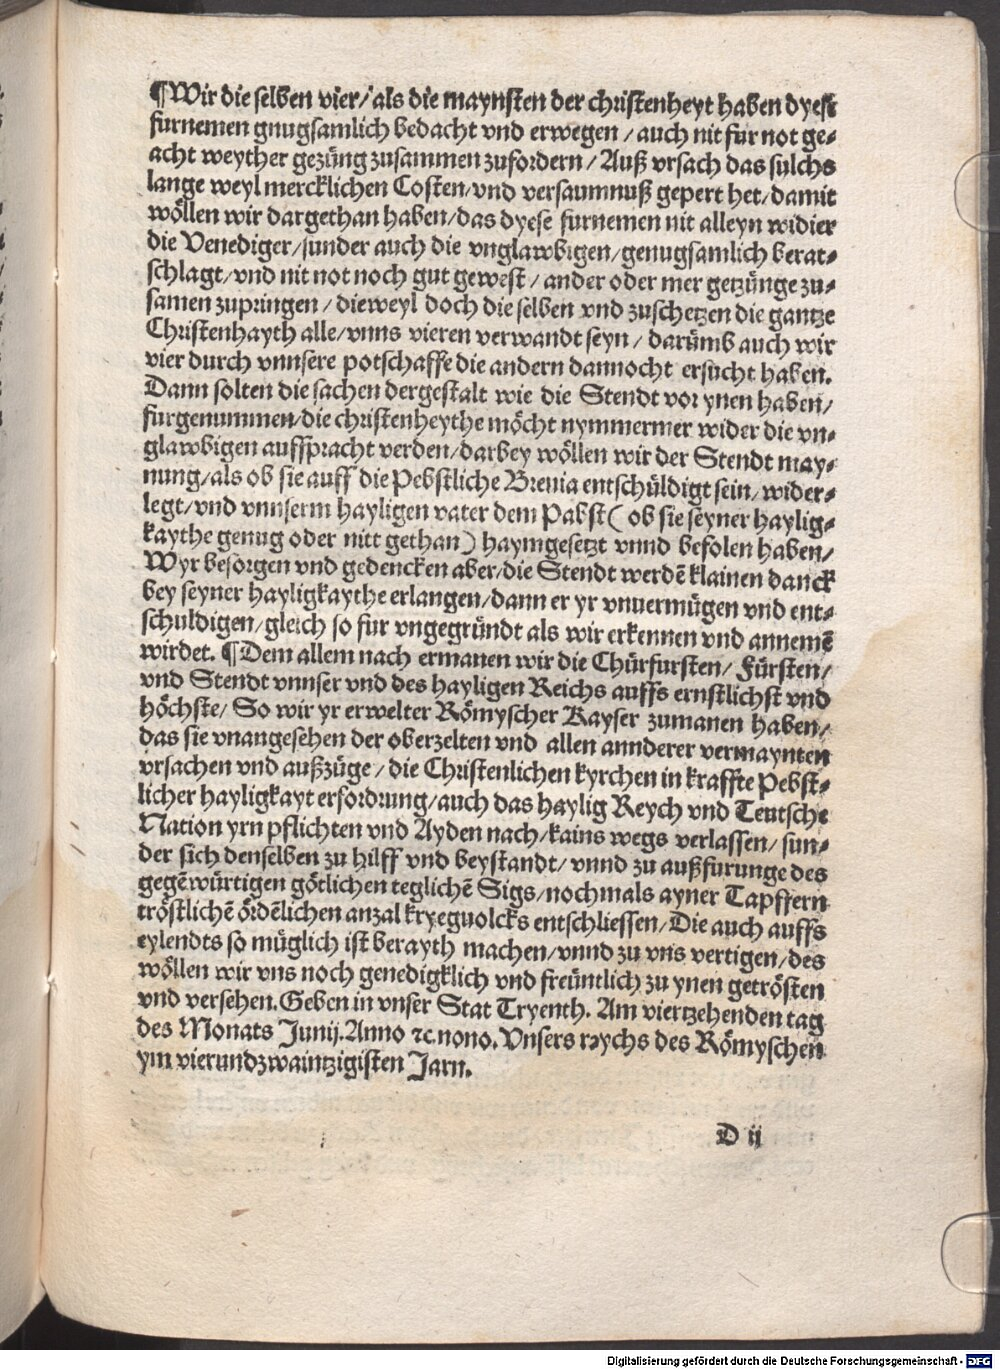 ¶Wir die selben vier/ als die maynsten der christenheyt haben dyese
furnemen gnugsamlich bedacht vnd erwegen / auch nit fur not ge⸗
acht weyther gezüng zusammen zufordern / Auß vrsach das sulchs
lange weyl mercklichen Costen/ vnd versaumnuß gepert het/ damit
wöllen wir dargethan haben/ das dyese furnemen nit alleyn widier
die Venediger/ sunder auch die vnglawbigen/ genugsamlich berat⸗
schlagt/ vnd nit not noch gut gewest / ander oder mer getzünge zu⸗
samen zupringen / dieweyl doch die selben vnd zuschetzen die gantze
Christenhayth alle/ vnns vieren verwandt seyn / darümb auch wir
vier durch vnnsere potschaffe die andern dannocht ersucht haben.
Dann solten die sachen dergestalt wie die Stendt vor ynen haben/
furgenummen/ die christenheythe möcht nymmermer wider die vn⸗
glawbigen auffspracht verden/ darbey wöllen wir der Stendt may⸗
nung/ als ob sie auff die Pebstliche Breuia entschüldigt sein/ wider⸗
legt/ vnd vnnserm hayligen vater dem Pabst ( ob sie seyner haylig⸗
kaythe genug oder nitt gethan ) haymgesetzt vnnd befolen haben/
Wyr besorgen vnd gedencken aber/ die Stendt werdē klainen danck
bey seyner hayligkaythe erlangen/ dann er yr vnuermügen vnd ent⸗
schuldigen/ gleich so fur vngegründt als wir erkennen vnd annemē
wirdet. ¶Dem allem nach ermanen wir die Chürfursten/ Fürsten/
vnd Stendt vnnser vnd des hayligen Reichs auffs ernstlichst vnd
höchste/ So wir yr erwelter Römyscher Kayser zumanen haben/
das sie vnangesehen der oberzelten vnd allen annderer vermaynten
vrsachen vnd außzüge / die Christenlichen kyrchen in kraffte Pebst⸗
licher hayligkayt erfordrung/ auch das haylig Reych vnd Teutsche
Nation yrn pflichten vnd Ayden nach/ kains wegs verlassen/ sun⸗
der sich denselben zu hilff vnd beystandt/ vnnd zu außfurunge des
gegēwürtigen götlichen teglichē Sigs/ nochmals ayner Tapffern
tröstlichē ördēlichen anzal kryeguolcks entschliessen/ Die auch auffs
eylendts so müglich ist berayth machen/ vnnd zu vns vertigen/ des
wöllen wir vns noch genedigklich vnd freüntlich zu ynen getrösten
vnd versehen. Geben in vnser Stat Tryenth. Am viertzehenden tag
des Monats Junij. Anno ꝛc. nono. Vnsers raychs des Römyschen
ym vierundzwaintzigisten Jarn.
D ij
Digitalisierung gefördert durch die Deutsche Forschungsgemeinschaft - DFG